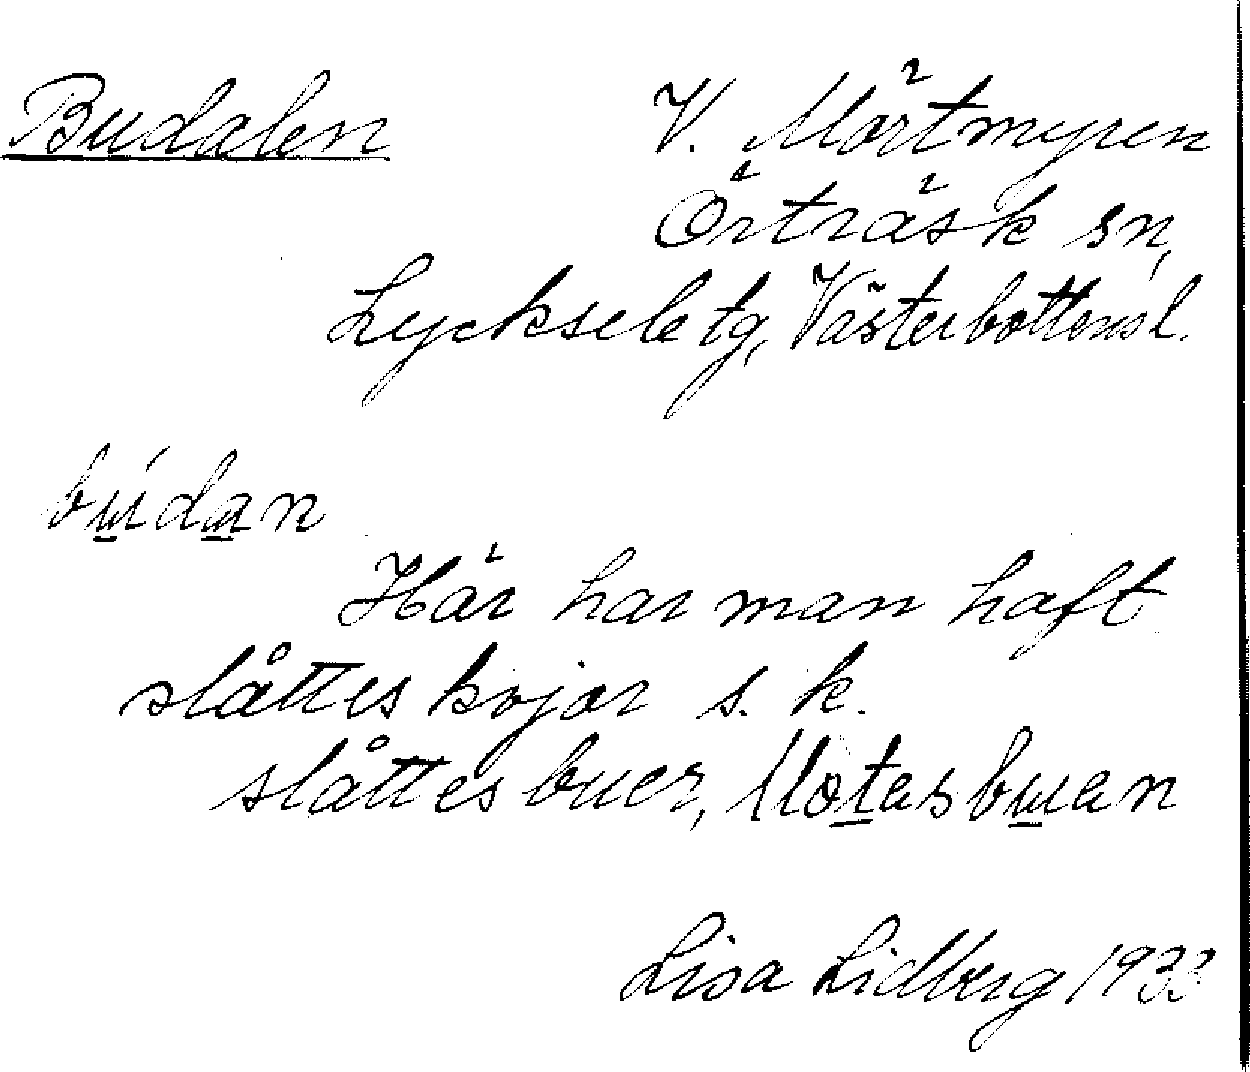 Budalen V. Mörtmyren
Örträsk sn,
Lycksele tg, Västerbottensl.
búdan
Här har man haft
slåtteskojor s. k.
slåttesbuer,
Lisa Lidberg 1933